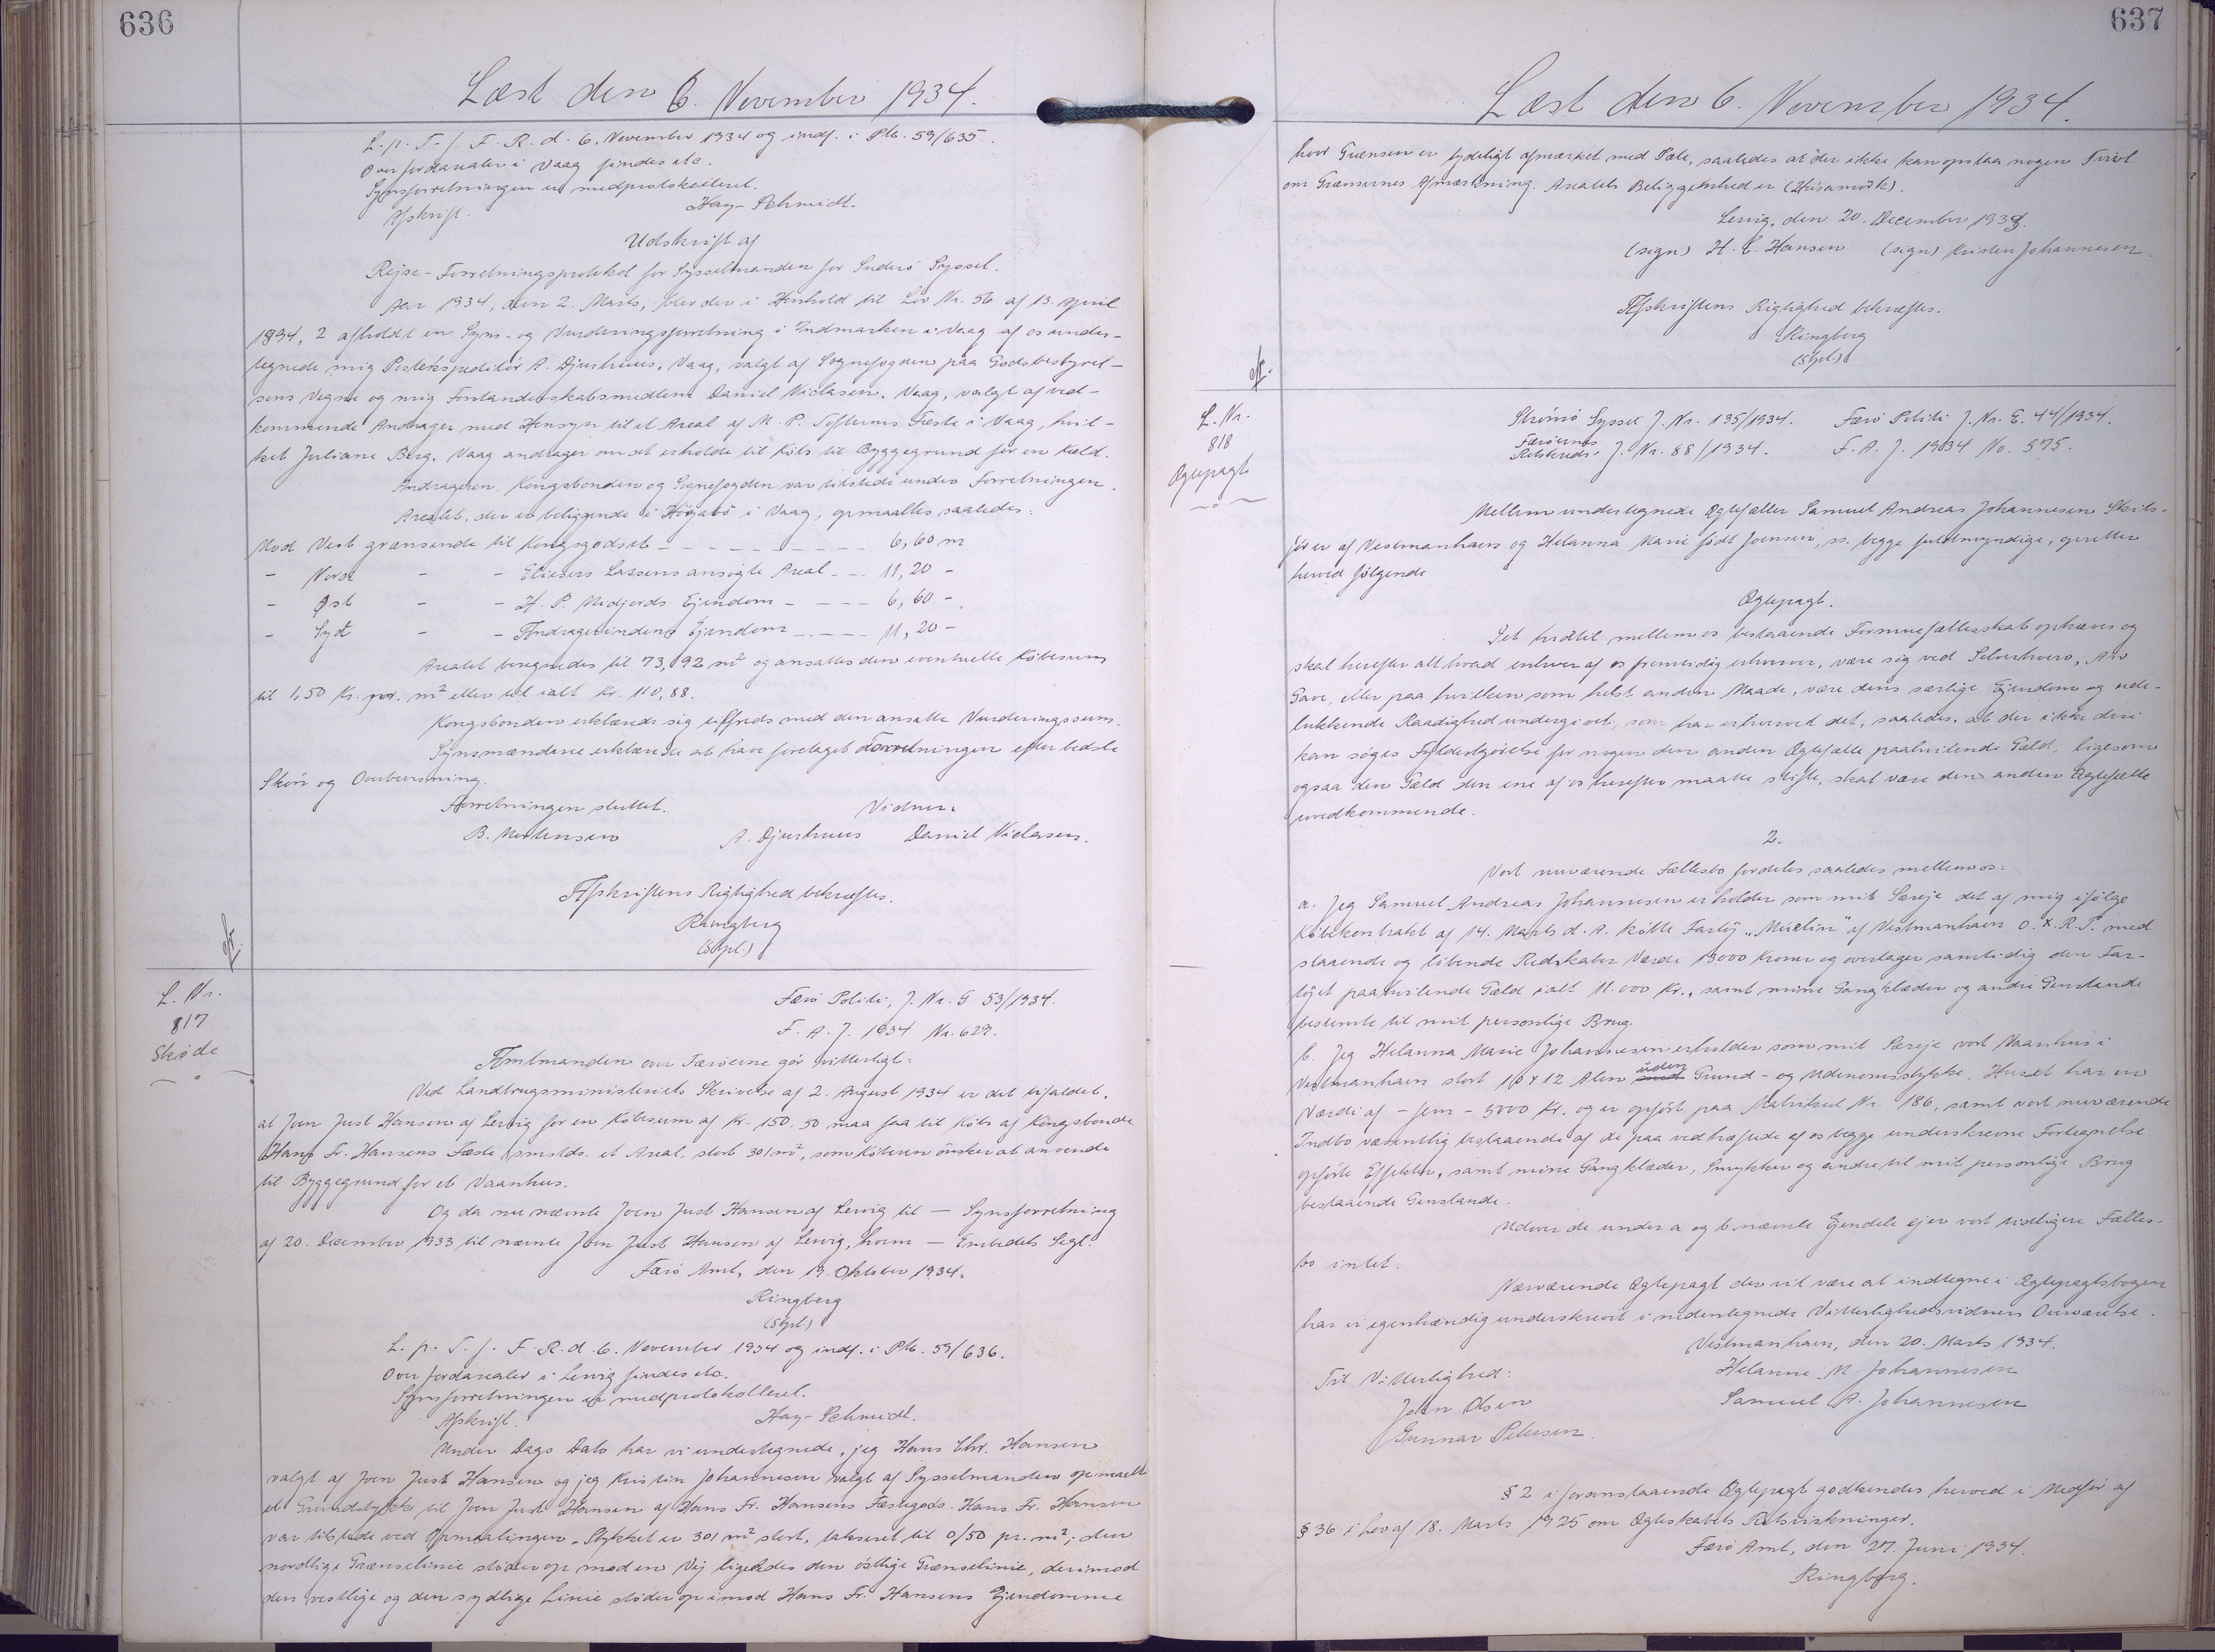 636
Læst den 6. November 1934.
L. p. T. f. F. R. d. 6. November 1934 og indf. i Ptk. 59/635.
Over fordarealer i Vaag findes etc.
Synsforretningen er medprotokolleret.
Afskrift. Hay-Schmidt.
Udskrift af
Rejse-Forretningsprotokol for Sysselmanden for Suderö Syssel.
Aar 1934, den 2. Marts, blev der i Henhold til Lov Nr. 56 af 13. April
1894, 2 afholdt en Syns- og Vurderingsforretning i Indmarken i Vaag af os under-
tegnede mig Postekspeditör A. Djurhuus, Vaag, valgt af Sognefogden paa Godsbestyrel-
sens Vegne og mig Forstanderskabsmedlem Daniel Niclasen, Vaag, valgt af ved-
kommende Andrager med Hensyn til et Areal af M. P. Toftums Fæste i Vaag, hvil-
ket Juliane Berg, Vaag andrager om at erholde til Köbs til Byggegrund for en Kæld.
Andrageren, Kongsbonden og Sognefogden var tilstede under Forretningen.
Arealet, der er beliggende i Högabö i Vaag, opmaaltes saaledes:
Mod Vest grænsende til Kongsgodset - - - - - - - - - 6,60 m
- Nord - - Eliesers Lassens ansøgte Areal - - - 11,20 -
- Øst - - H. P. Midjords Ejendom - - - - 6,60 -
- Syd - - Andragerindens Ejendom - - - - 11,20 -
Arealet beregnedes til 73,92 m² og ansattes den eventuelle Köbesum
til 1,50 Kr. pr. m² eller til ialt Kr. 110,88.
Kongsbonden erklærede sig tilfreds med den ansatte Vurderingssum.
Synsmændene erklærede at have foretaget Forretningen efter bedste
Skön og Overbevisning.
Forretningen sluttet. Vidner:
B. Mortensen A. Djurhuus Daniel Niclasen.
Afskriftens Rigtighed bekræftes.
Ringberg
(Stpl.)
L. Nr.
817
Skøde
Færö Politi, J. Nr. G 53/1934.
F. A. J. 1934 Nr. 629.
Amtmanden over Færöerne gör vitterligt:
Ved Landbrugsministeriets Skrivelse af 2. August 1934 er det tilfaldet,
at Joen Just Hansen af Lervig for en Köbesum af Kr. 150,50 maa faa til Köbs af Kongsbonde
Hans Fr. Hansens Fæste smstds. et Areal stort 301 m², som Köberen önsker at anvende
til Byggegrund for et Vaanhus.
Og da nu nævnte Joen Just Hansen af Lervig til — Synsforretning
af 20. December 1933 til nævnte Joen Just Hansen af Lervig, hvem — Embedets Segl.
Færö Amt, den 19. Oktober 1934.
Ringberg
(Stpl.)
L. p. T. f. F. R. d. 6. November 1934 og indf. i Ptk. 59/636.
Over fordarealer i Lervig findes etc.
Synsforretningen er medprotokolleret.
Afskrift. Hay-Schmidt.
Under Dags Dato har vi undertegnede, jeg Hans Chr. Hansen
valgt af Joen Just Hansen og jeg Kristin Johannesen valgt af Sysselmanden opmaalt
et Grundstykke til Joen Just Hansen af Hans Fr. Hansens Fæstegods. Hans Fr. Hansen
var tilstede ved Opmaalingen. Stykket er 301 m² stort, takseret til 0/50 pr. m²; den
nordlige Grænselinie stöder op mod en Vej ligeledes den östlige Grænselinie, derimod
den vestlige og den sydlige Linie stöder op imod Hans Fr. Hansens Ejendomme
637
Læst den 6. November 1934.
hvor Grænsen er tydeligt afmærket med Pæle, saaledes at der ikke kan opstaa nogen Tvivl
om Grænsernes Afmærkning. Arealets Beliggenhed er (Húsamörk).
Lervig, den 20. December 1933.
(sign) H. C. Hansen (sign) Kristen Johannesen.
Afskriftens Rigtighed bekræftes.
Ringberg
(Stpl.)
L. Nr.
818
Ægtepagt
Strömö Syssel J. Nr. 135/1934. Færö Politi J. Nr. E. 44/1934.
Færöernes
Retskreds J. Nr. 88/1934. F. A. J. 1934 No. 575.
Mellem undertegnede Ægtefæller Samuel Andreas Johannesen Skibs-
förer af Vestmanhavn og Helanna Marie födt Joensen, ss. begge fuldmyndige, oprettes
herved fölgende
Ægtepagt.
Det hidtil mellem os bestaaende Formuefællesskab ophæves og
skal herefter alt hvad enhver af os fremtidig erhverver, være sig ved Selverhverv, Arv
Gave, eller paa hvilken som helst anden Maade, være dens særlige Ejendom og ude-
lukkende Raadighed undergivet, som har erhvervet det, saaledes, at der ikke deri
kan söges Fyldestgörelse for nogen den anden Ægtefælle paahvilende Gæld, ligesom
ogsaa den Gæld den ene af os herefter maatte stifte, skal være den anden Ægtefælle
uvedkommende.
2.
Vort nuværende Fællesbo fordeles saaledes mellem os:
a. Jeg Samuel Andreas Johannesen erholder som mit Særeje det af mig ifölge
Köbekontrakt af 14. Marts d. A. köbte Fartöj "Mizelin" af Vestmanhavn O. X. R. P. med
staaende og löbende Redskaber Værdi 13000 Kroner og overtager samtidig den Far-
töjet paahvilende Gæld ialt 11.000 Kr., samt mine Gangklæder og andre Genstande
bestemte til mit personlige Brug.
b. Jeg Helanna Marie Johannesen erholder som mit Særeje vort Vaanhus i
Vestmanhavn stort 10 x 12 Alen uden Grund- og Udenomsstykke. Huset har en
Værdi af - fem - 5000 Kr. og er opfört paa Matrikul Nr. 186, samt vort nuværende
Indbo væsentlig bestaaende af de paa vedhæftede af os begge underskrevne Fortegnelse
opförte Effekter, samt mine Gangklæder, Smykker og andre til mit personlige Brug
bestaaende Genstande.
Udover de under a og b nævnte Ejendele ejer vort tidligere Fælles-
bo intet.
Nærværende Ægtepagt der vil være at indtegne i Ægtepagtsbogen
har vi egenhændig underskrevet i nedentegnede Vitterlighedsvidners Overværelse.
Vestmanhavn, den 20. Marts 1934.
Til Vitterlighed: Helanne M. Johannesen
John Olsen Samuel A. Johannesen
Gunnar Petersen.
§ 2 i foranstaaende Ægtepagt godkendes herved i Medför af
§ 36 i Lov af 18. Marts 1925 om Ægteskabets Retsvirkninger.
Færö Amt, den 27. Juni 1934.
Ringberg.